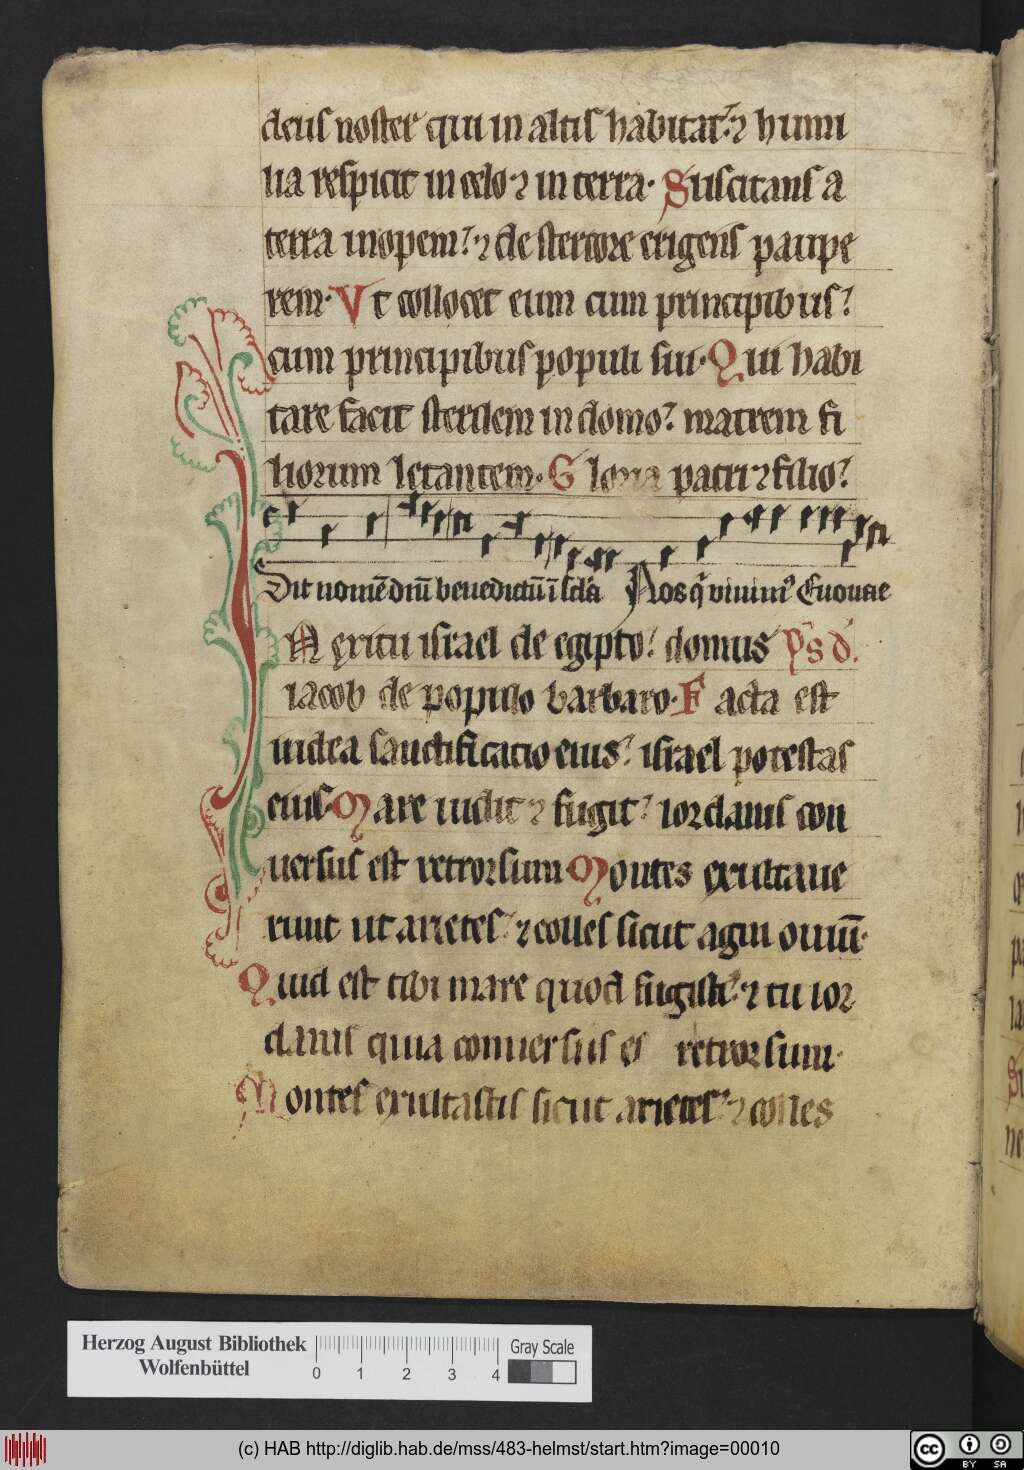 deus noster qui in altis habitat ⁊ humi
lia respicit in celo ⁊ in terra. Suscitans a
terra inopem ⁊ de stercore erigens paupe
rem. Vt collocet eum cum principibus
cum principibus populi sui. Qui habi
tare facit sterilem in domo matrem fi
liorum letantem. Gloria patri ⁊ filio
Sit nomē dn̄i benedictū ī scła Nos q̇ viuimꝰ Euouae
In exitu israel de egipto domus p̄s d̄.
iacob de populo barbaro. Facta est
iudea sanctificatio eius israel potestas
eius. Mare uidit ⁊ fugit iordanis con
uersus est retrorsum Montes exultaue
runt ut arietes ⁊ colles sicut agni ouiū.
Quid est tibi mare quod fugisti ⁊ tu ior
danis quia conuersus es retrorsum.
Montes exultastis sicut arietes ⁊ colles
Herzog August Bibliothek
Wolfenbüttel
0 1 2 3 4
Gray Scale
(c) HAB http://diglib.hab.de/mss/483-helmst/start.htm?image=00010
cc BY SA